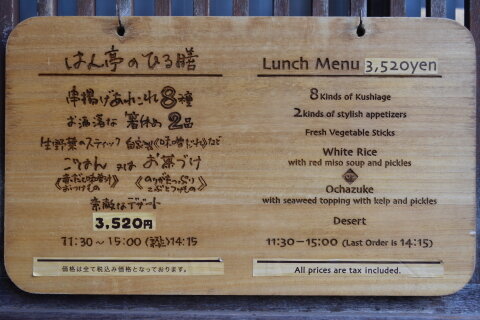 はん亭のひる膳
串揚げあれこれ8種
お洒落な箸休め2品
生野菜のスティック 自家製《味噌だれ》など
ごはん 又は お茶づけ
《赤だし味噌汁 おつけもの》 《のりがたっぷり こぶとつけもの》
素敵なデザート
3,520円
11:30～15:00 14:15
価格は全て税込み価格となっております。
Lunch Menu 3,520yen
8 Kinds of Kushiage
2 kinds of stylish appetizers
Fresh Vegetable Sticks
White Rice
with red miso soup and pickles
or
Ochazuke
with seaweed topping with kelp and pickles
Desert
11:30–15:00 (Last Order is 14:15)
All prices are tax included.